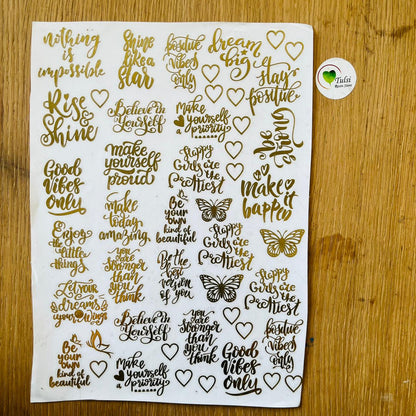 nothing
is
impossible
Shine
like a
star
positive
vibes
only
dream
big
stay
positive
Tulsi
Resin Store
Rise
&
Shine
Believe in
Yourself
Make
yourself
a priority
Good
Vibes
Only
make
yourself
proud
make it
happen
Be
your
own
kind of
beautiful
Enjoy
the
little
things
make
today
amazing
Happy
Girls are
the
Prettiest
Happy
Girls are
the
Prettiest
you are
stronger
than
you
think
Be the
Best
version
of you
Happy
Girls are
the
Prettiest
Let your
dreams
be
your wings
Believe in
Yourself
you
are
stronger
than
you
think
positive
vibes
only
Be
your
own
kind of
beautiful
Make
yourself
a priority
Good
Vibes
Only